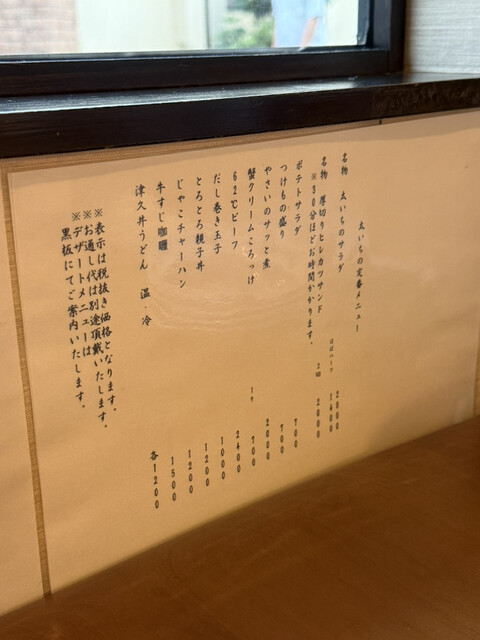 太いちの定番メニュー
名物 太いちのサラダ 2000
ほぼハーフ 1400
名物 厚切りヒレカツサンド 2切 2000
※30分ほどお時間かかります。
ポテトサラダ 700
つけもの盛り 700
やさいのサッと煮 2000
蟹クリームころっけ 1ヶ 700
62℃ビーフ 2400
だし巻き玉子 1000
とろとろ親子丼 1200
じゃこチャーハン 1200
牛すじ咖喱 1500
津久井うどん 温 冷 各1200
※表示は税抜き価格となります。
※お通し代は別途頂戴いたします。
※デザートメニューは
黒板にてご案内いたします。